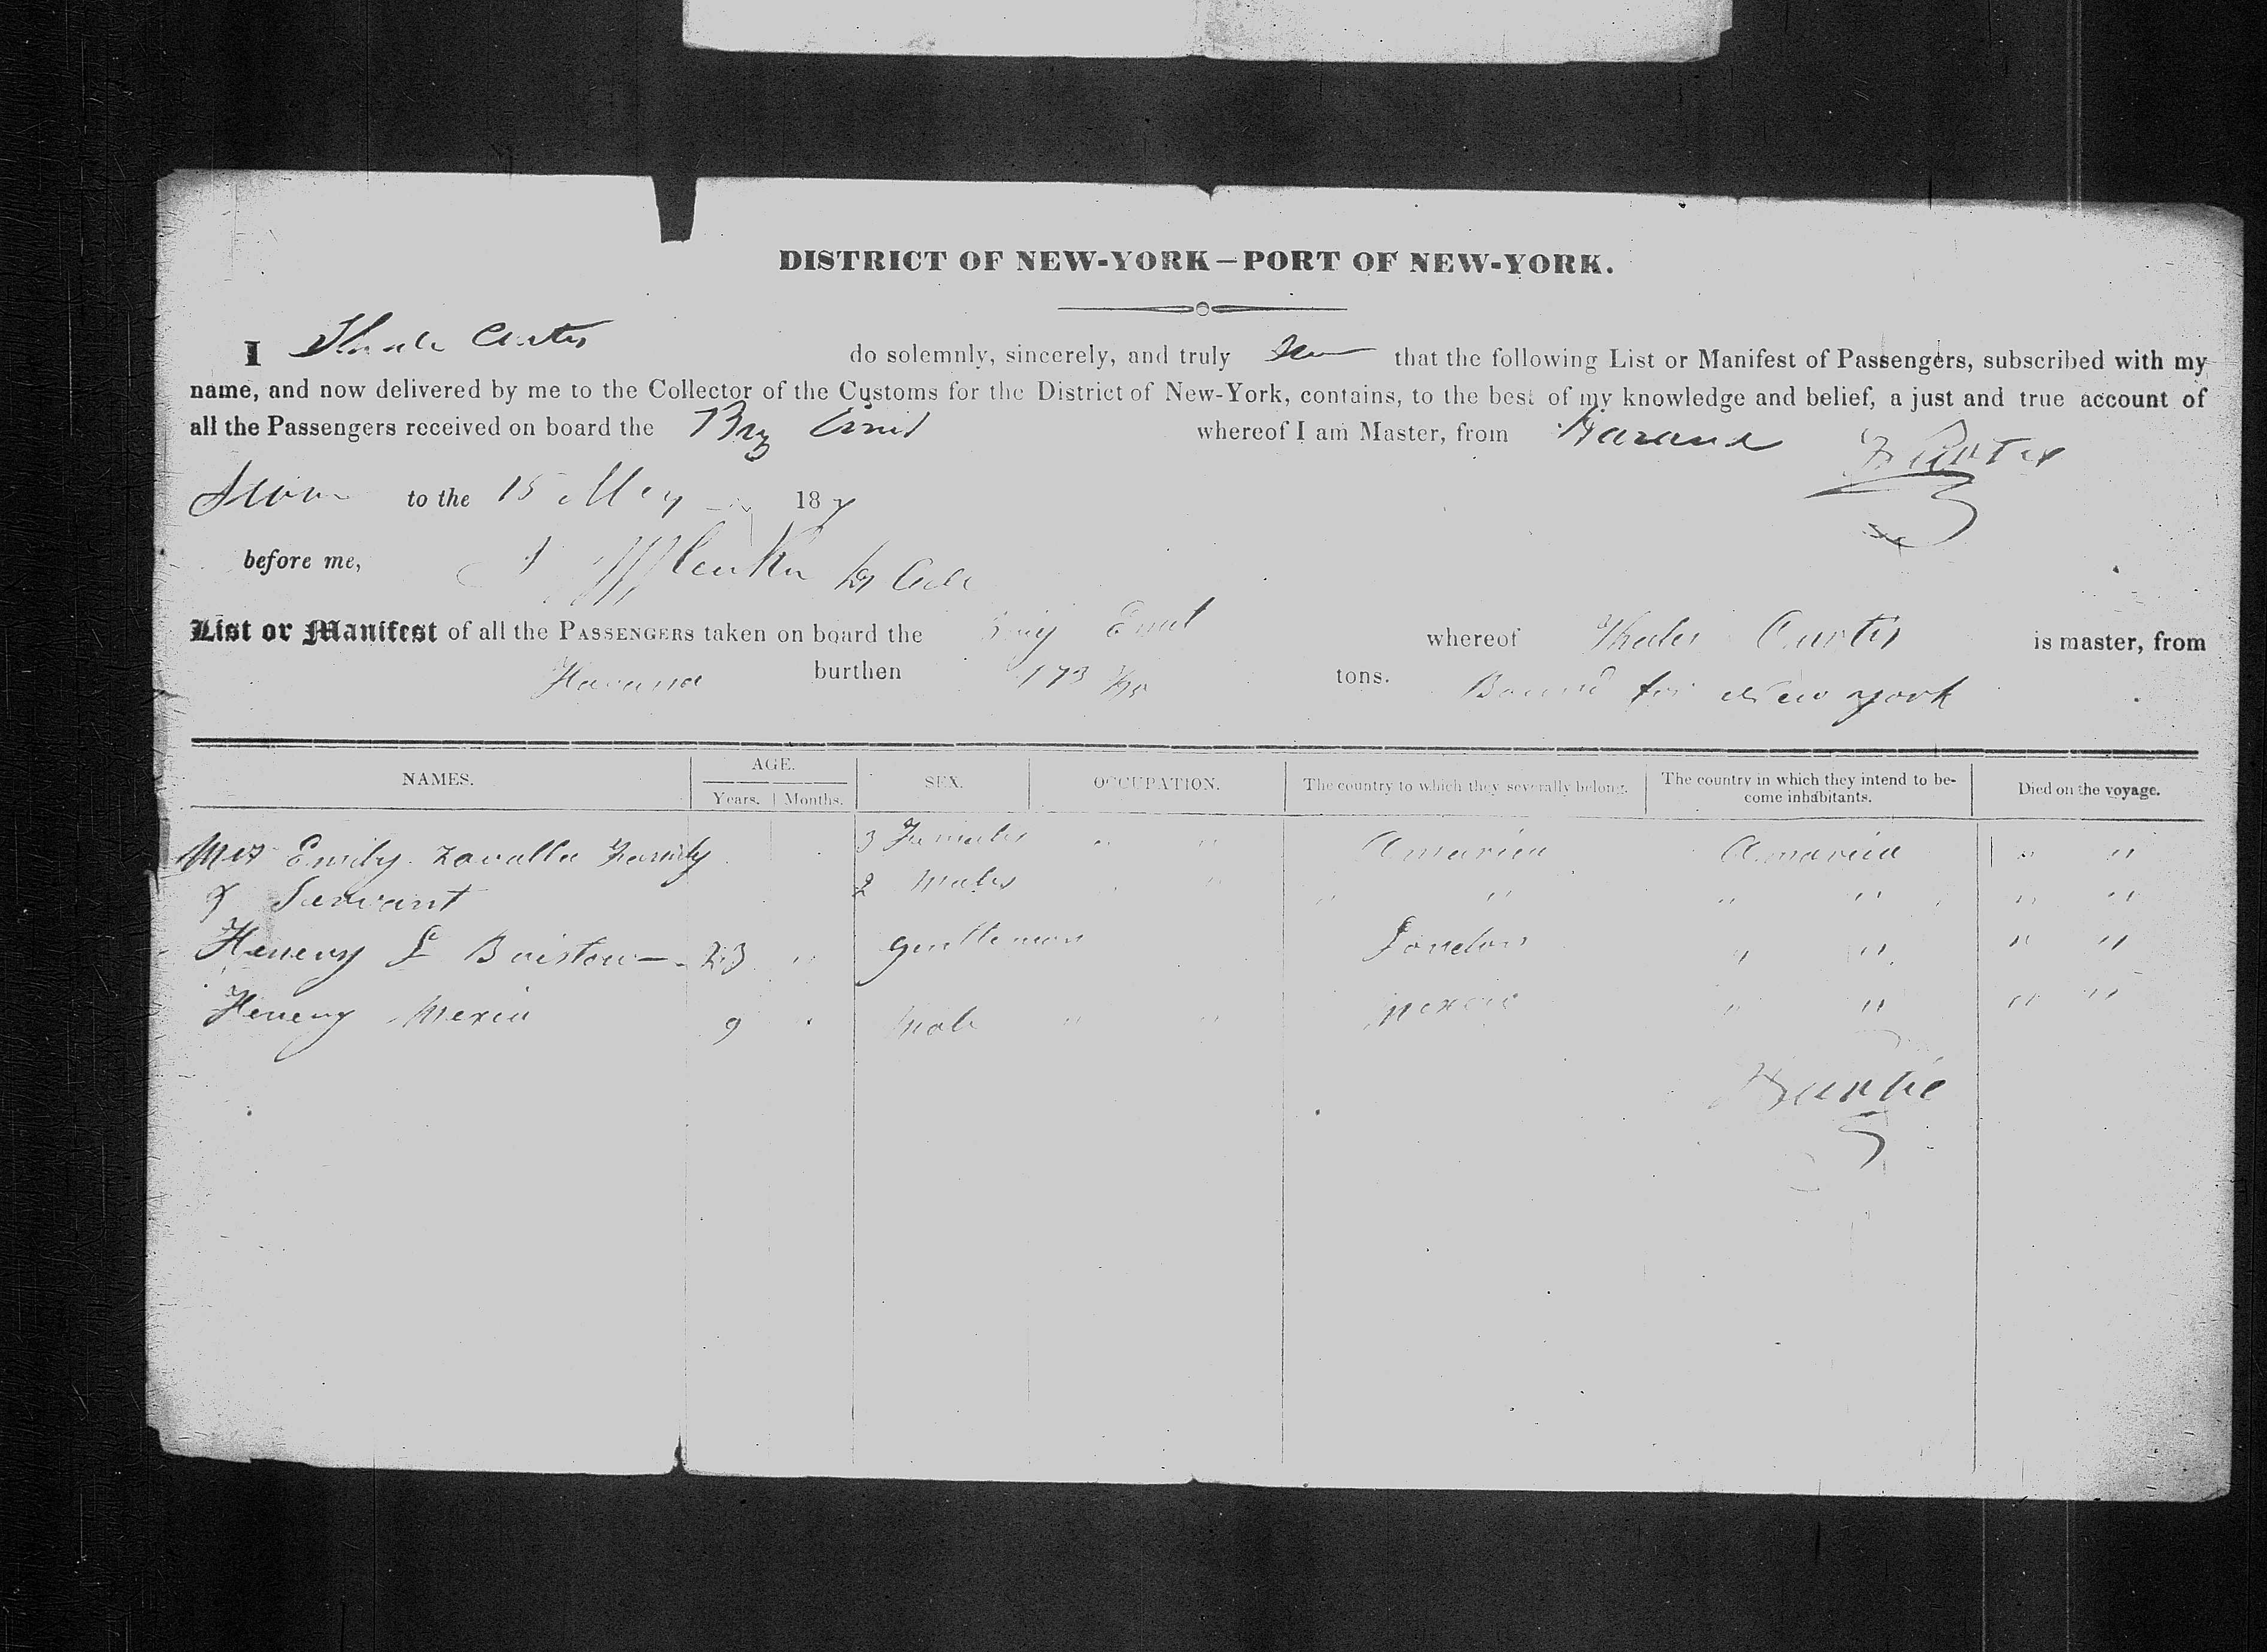 DISTRICT OF NEW-YORK—PORT OF NEW-YORK.
I Curtis do solemnly, sincerely, and truly that the following List or Manifest of Passengers, subscribed with my
name, and now delivered by me to the Collector of the Customs for the District of New-York, contains, to the best of my knowledge and belief, a just and true account of
all the Passengers received on board the Brig whereof I am Master, from Havana
to the 15 May 18
before me,
List or Manifest of all the PASSENGERS taken on board the Brig whereof Thales Curtis is master, from
Havana burthen 173 tons. Bound for New York
NAMES. AGE. Years. Months. SEX. OCCUPATION. The country to which they severally belong. The country in which they intend to be-
come inhabitants. Died on the voyage.
Mrs Emily Zavalla Family 3 Females " " America America " "
& Servant 2 Males " " " " " " "
Henery L Baistow 23 " gentleman London " " " "
Henery Mexia 9 " Male " " Mexico " " " "